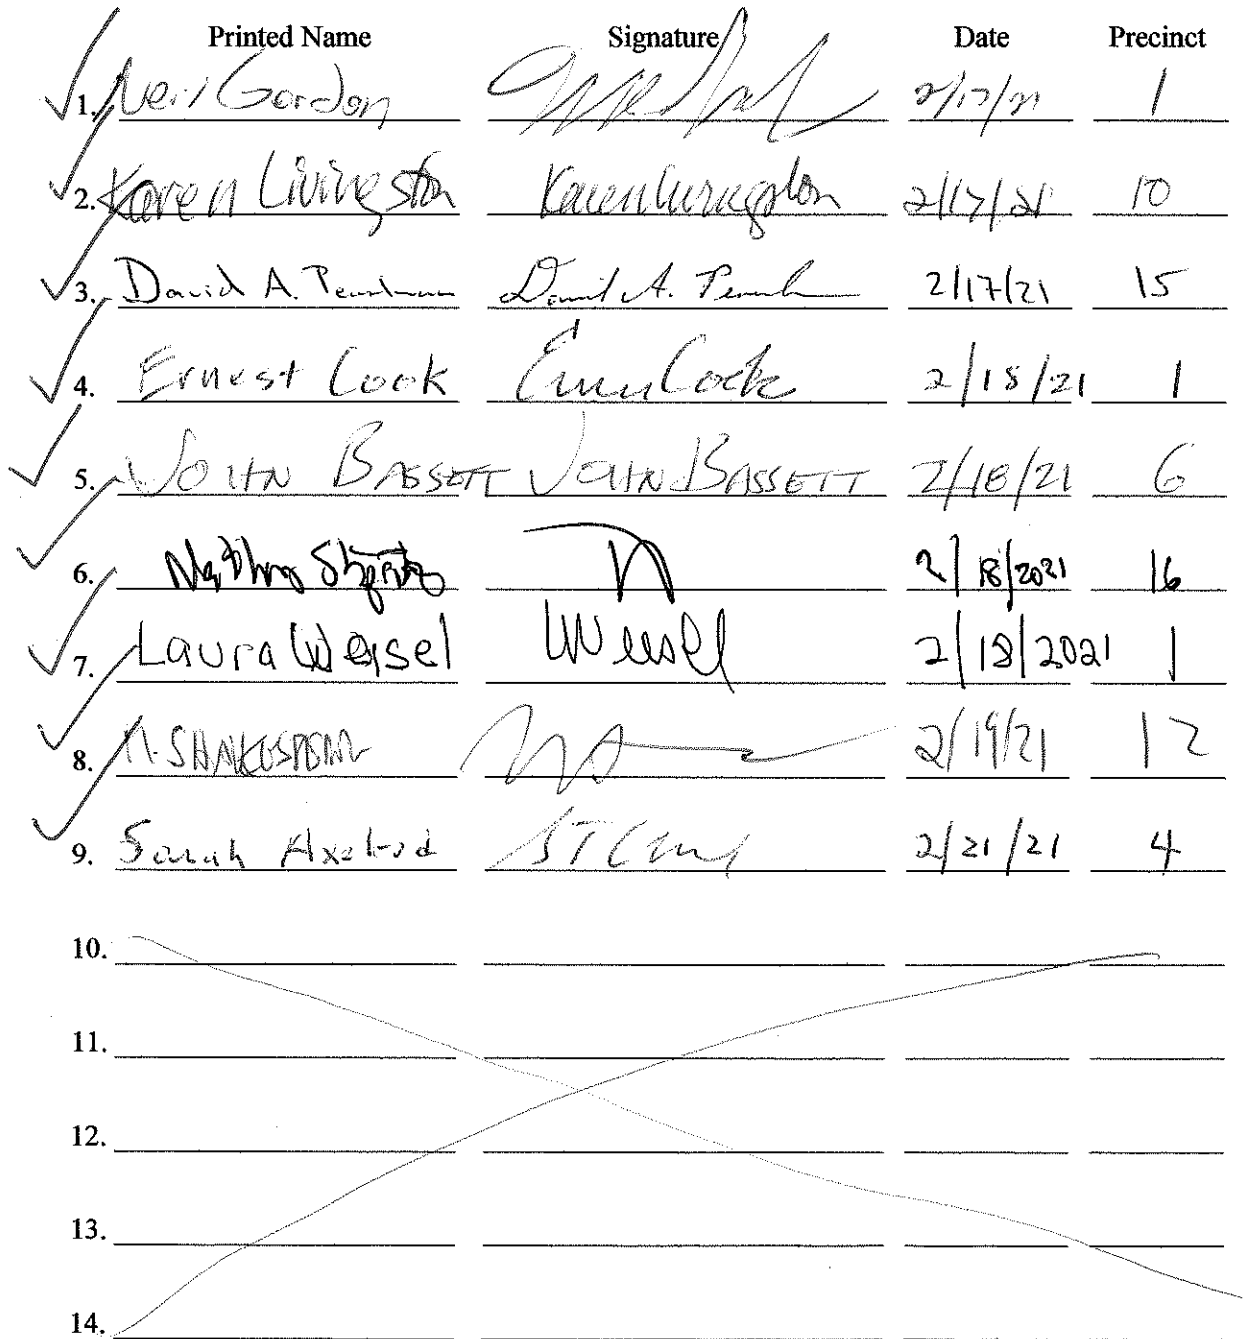 Printed Name Signature Date Precinct
1. Gordon 2/17/21 1
2. Karen Livingston Karen Livingston 2/17/21 10
3. David A. David A. 2/17/21 15
4. Ernest Cook Cook 2/18/21 1
5. JOHN BASSETT JOHN BASSETT 2/18/21 6
6. 2/18/2021 16
7. Laura Weisel LWeisel 2/18/2021 1
8. 2/19/21 12
9. Sarah Axelrod 2/21/21 4
10.
11.
12.
13.
14.